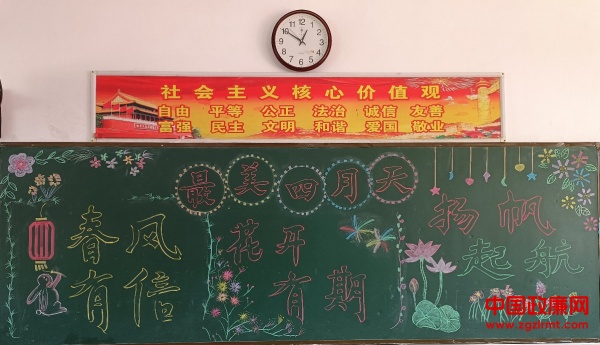 社会主义核心价值观
自由 平等 公正 法治 诚信 友善
富强 民主 文明 和谐 爱国 敬业
最美四月天
春风
有信
花开
有期
扬帆
起航
中国政廉网
www.zgzlrmt.com